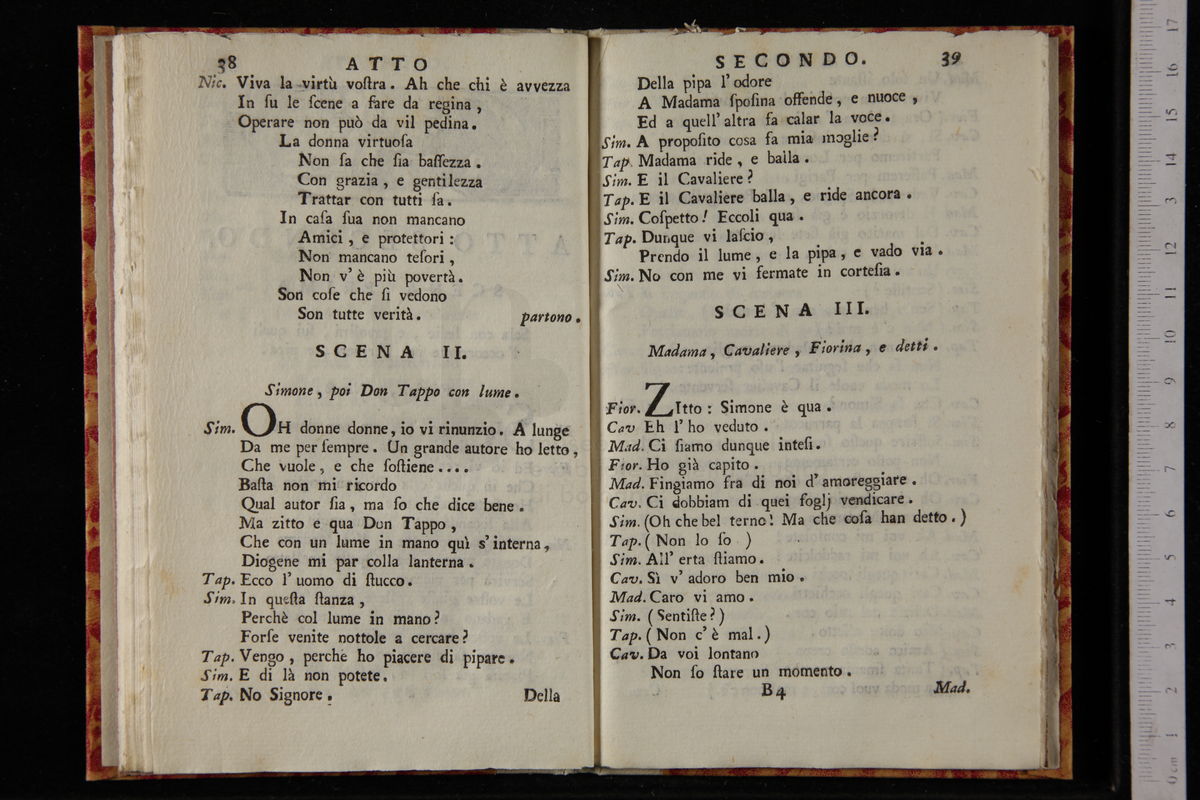 38 ATTO
Nic. Viva la virtù voſtra. Ah che chi è avvezza
In ſu le ſcene a fare da regina,
Operare non può da vil pedina.
La donna virtuoſa
Non ſa che ſia baſſezza.
Con grazia, e gentilezza
Trattar con tutti ſa.
In caſa ſua non mancano
Amici, e protettori:
Non mancano teſori,
Non v' è più povertà.
Son coſe che ſi vedono
Son tutte verità. partono.
SCENA II.
Simone, poi Don Tappo con lume.
Sim. OH donne donne, io vi rinunzio. A lunge
Da me per ſempre. Un grande autore ho letto,
Che vuole, e che ſoſtiene....
Baſta non mi ricordo
Qual autor ſia, ma ſo che dice bene.
Ma zitto e qua Don Tappo,
Che con un lume in mano quì s'interna,
Diogene mi par colla lanterna.
Tap. Ecco l' uomo di ſtucco.
Sim. In queſta ſtanza,
Perchè col lume in mano?
Forſe venite nottole a cercare?
Tap. Vengo, perchè ho piacere di pipare.
Sim. E di là non potete.
Tap. No Signore. Della
SECONDO. 39
Della pipa l' odore
A Madama ſpoſina offende, e nuoce,
Ed a quell' altra fa calar la voce.
Sim. A propoſito coſa fa mia moglie?
Tap. Madama ride, e balla.
Sim. E il Cavaliere?
Tap. E il Cavaliere balla, e ride ancora.
Sim. Coſpetto! Eccoli qua.
Tap. Dunque vi laſcio,
Prendo il lume, e la pipa, e vado via.
Sim. No con me vi fermate in corteſia.
SCENA III.
Madama, Cavaliere, Fiorina, e detti.
Fior. ZItto: Simone è qua.
Cav Eh l' ho veduto.
Mad. Ci ſiamo dunque inteſi.
Fior. Ho già capito.
Mad. Fingiamo fra di noi d' amoreggiare.
Cav. Ci dobbiam di quei foglj vendicare.
Sim. (Oh che bel terno! Ma che coſa han detto.)
Tap. (Non lo ſo )
Sim. All' erta ſtiamo.
Cav. Sì v' adoro ben mio.
Mad. Caro vi amo.
Sim. (Sentiſte?)
Tap. (Non c' è mal.)
Cav. Da voi lontano
Non ſo ſtare un momento.
B4 Mad.
17
16
15
14
13
12
11
10
9
8
7
6
5
4
3
2
1
0 cm